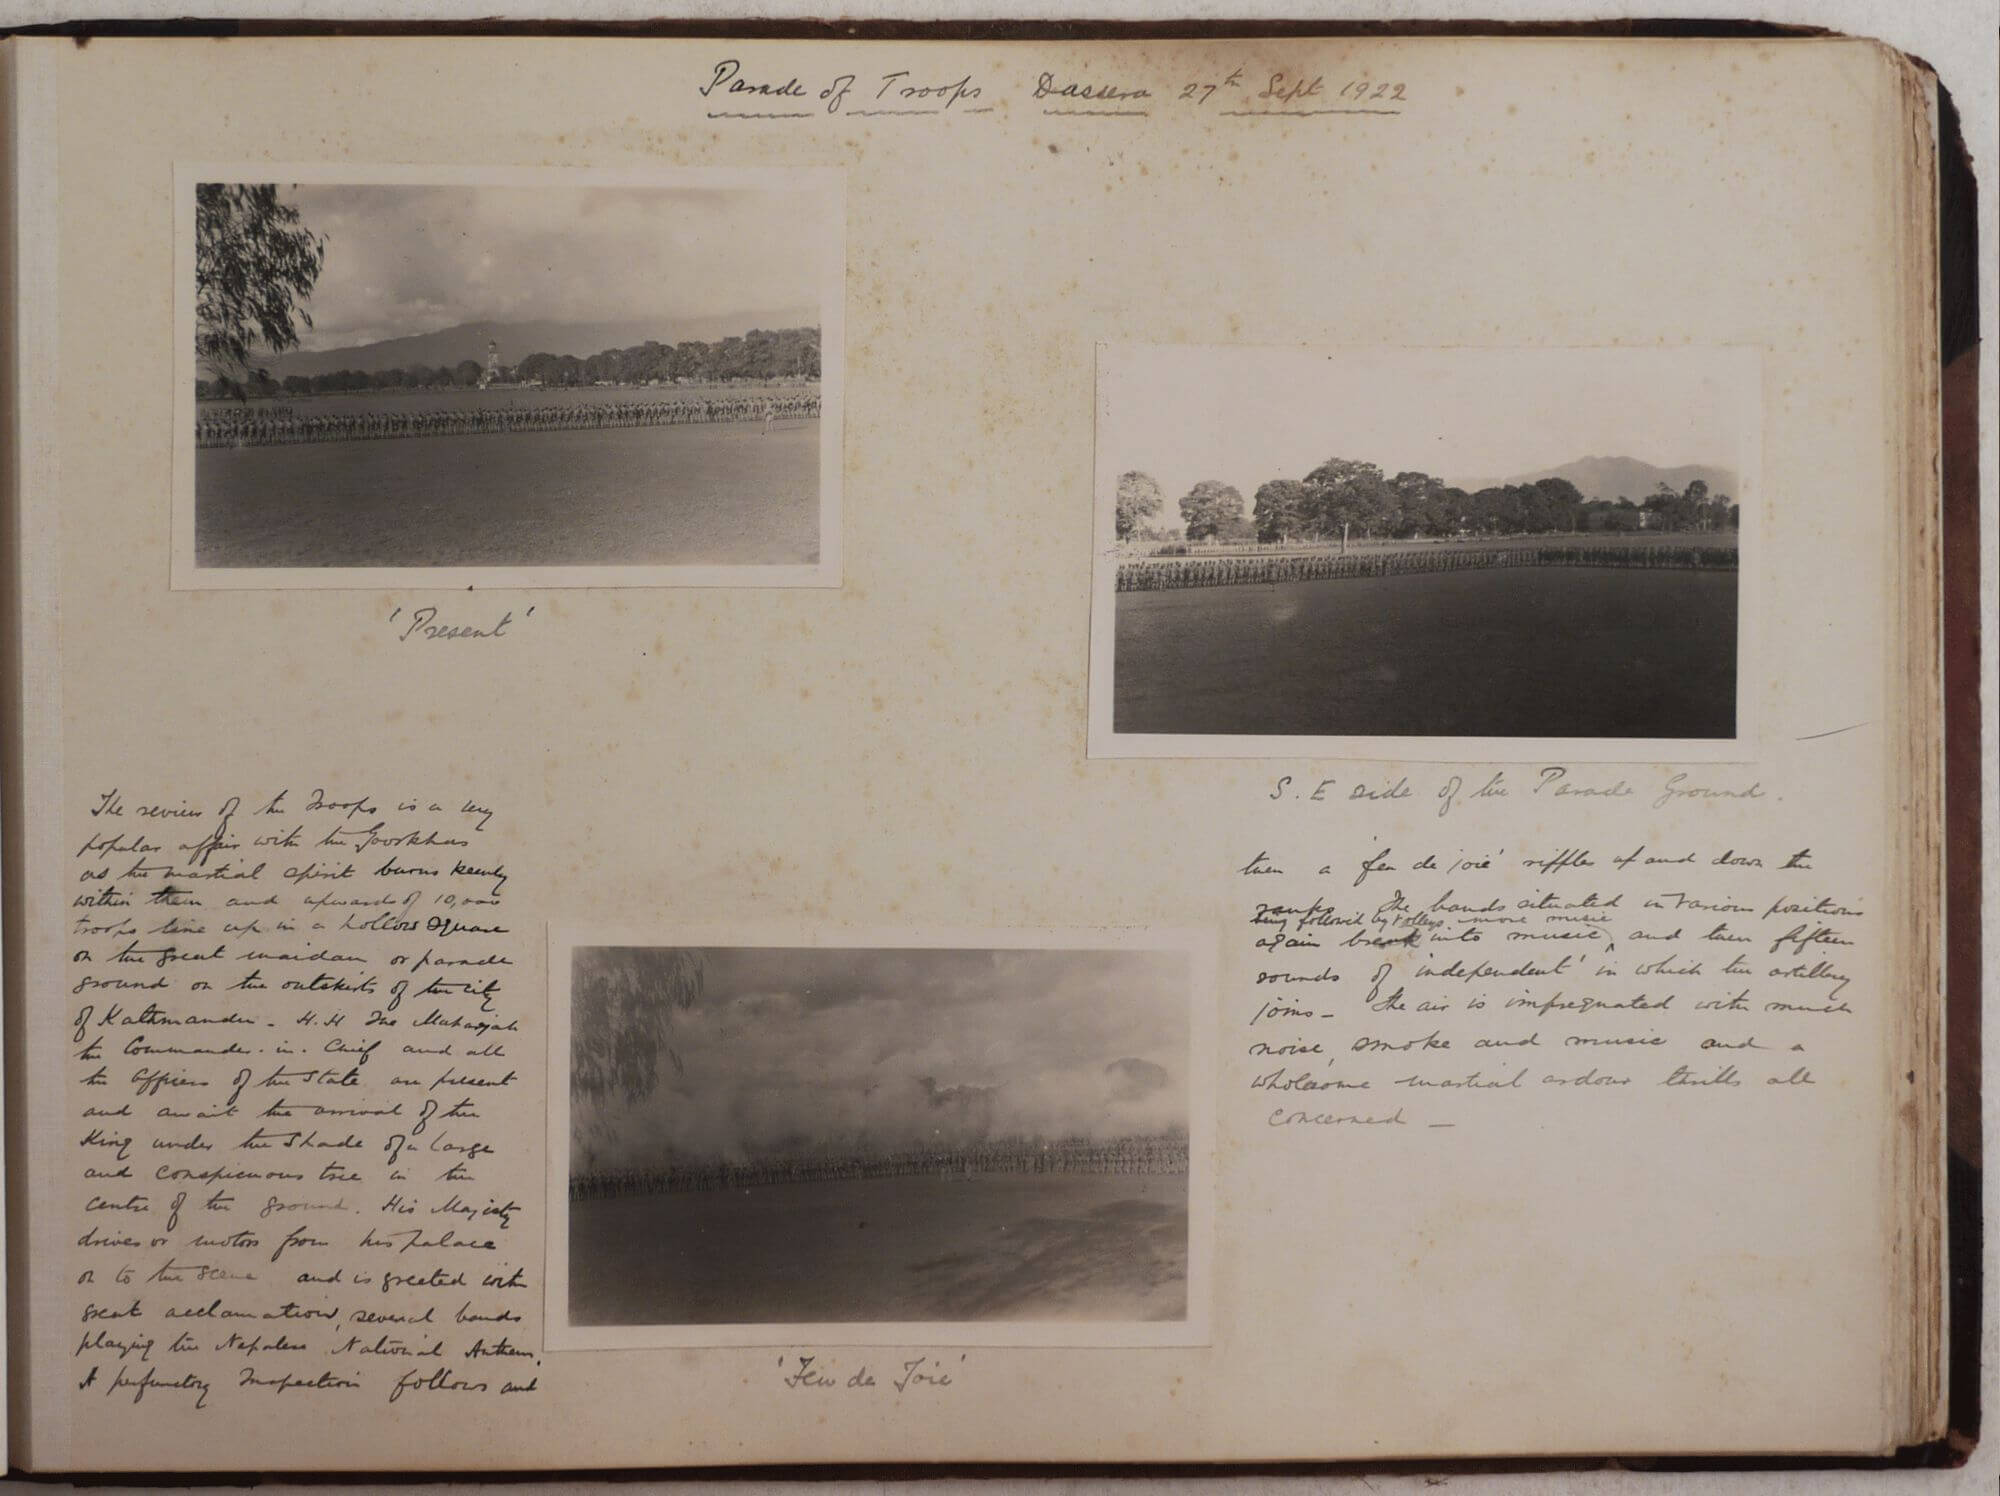 Parade of Troops Dassera 27th Sept 1922
'Present'
S. E side of the Parade Ground.
The review of the Troops is a very
popular affair with the Goorkhas
as the martial spirit burns keenly
within them and upwards of 10,000
troops line up in a hollow square
on the great maidan or parade
ground on the outskirts of the city
of Kathmandu - H.H The Maharajah
the Commander-in-Chief and all
the Officers of the State are present
and await the arrival of the
King under the shade of a large
and conspicuous tree in the
centre of the ground. His Majesty
drives or motors from his palace
on to the scene and is greeted with
great acclamation, several bands
playing the Nepalese National Anthem.
A perfunctory Inspection follows and
'Feu de Joie'
then a 'feu de joie' riffles up and down the
ranks The bands situated in various positions
being followed by volleys more music
again break into music, and then fifteen
rounds of 'independent' in which the artillery
joins - The air is impregnated with much
noise, smoke and music and a
wholesome martial ardour thrills all
concerned -